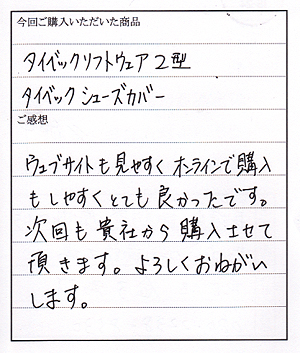 今回ご購入いただいた商品
タイベックソフトウェア2型
タイベックシューズカバー
ご感想
ウェブサイトも見やすくオンラインで購入
もしやすくとても良かったです。
次回も貴社から購入させて
頂きます。よろしくおねがい
します。